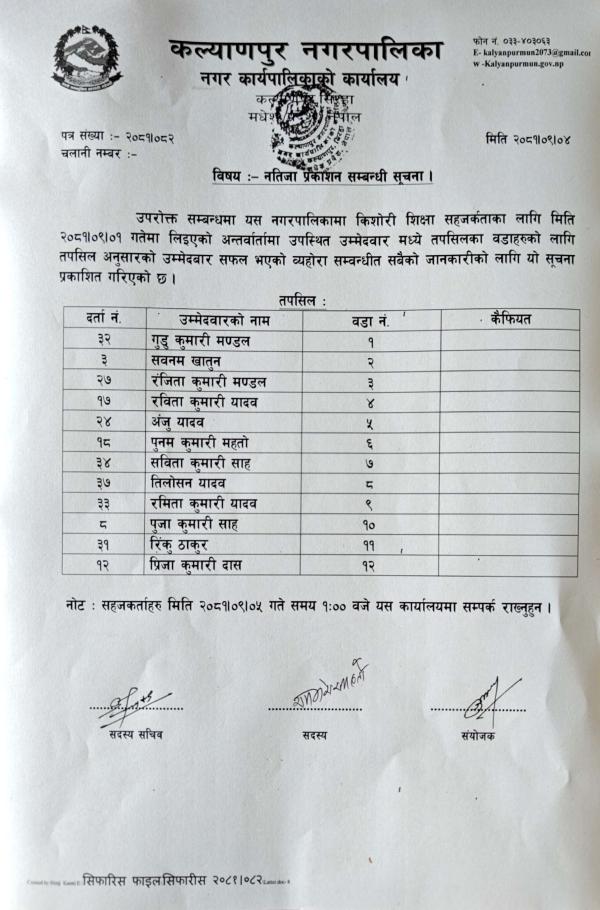 कल्याणपुर नगरपालिका
नगर कार्यपालिकाको कार्यालय
फोन नं. ०३३-४०३०६३
E- kalyanpurmun2073@gmail.com
w -Kalyanpurmun.gov.np
कल्याणपुर सिरहा
मधेश प्रदेश नेपाल
पत्र संख्या :- २०८१।०८२
मिति २०८१।०९।०४
चलानी नम्बर :-
विषय :- नतिजा प्रकाशन सम्बन्धी सूचना ।
उपरोक्त सम्बन्धमा यस नगरपालिकामा किशोरी शिक्षा सहजर्कताका लागि मिति
२०८१।०९।०१ गतेमा लिइएको अन्तर्वार्तामा उपस्थित उम्मेदवार मध्ये तपसिलका वडाहरुको लागि
तपसिल अनुसारको उम्मेदवार सफल भएको व्यहोरा सम्बन्धीत सबैको जानकारीको लागि यो सूचना
प्रकाशित गरिएको छ ।
तपसिल :
दर्ता नं. उम्मेदवारको नाम वडा नं. कैफियत
३२ गुडु कुमारी मण्डल १
३ सवनम खातुन २
२७ रंजिता कुमारी मण्डल ३
१७ रविता कुमारी यादव ४
२४ अंजु यादव ५
१८ पुनम कुमारी महतो ६
३४ सविता कुमारी साह ७
३७ तिलोसन यादव ८
३३ रमिता कुमारी यादव ९
८ पुजा कुमारी साह १०
३१ रिंकु ठाकुर ११
१२ प्रिजा कुमारी दास १२
नोट : सहजकर्ताहरु मिति २०८१।०९।०५ गते समय १:०० बजे यस कार्यालयमा सम्पर्क राख्नुहुन ।
सदस्य सचिव सदस्य संयोजक
सिफारिस फाइलसिफारीस २०८१।०८२